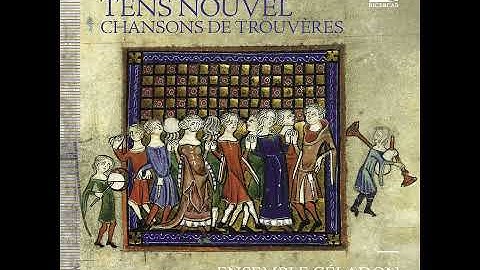 TENS NOUVEL
CHANSONS DE TROUVÈRES
RICERCAR
ENSEMBLE CÉLADON